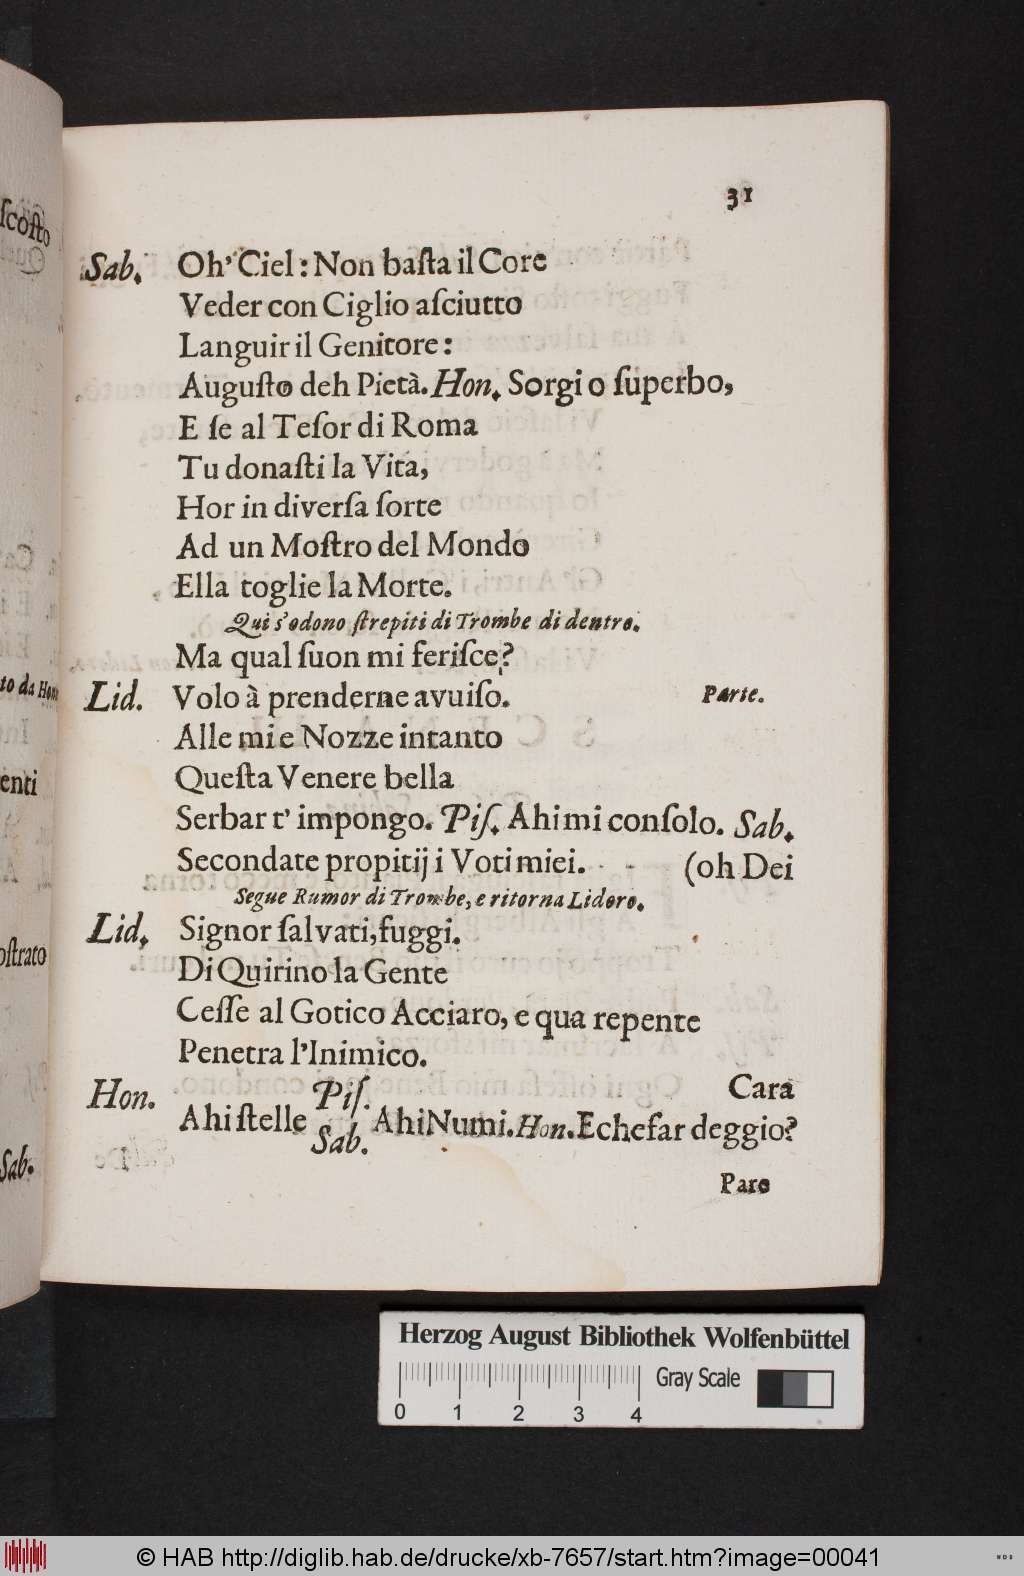 31
Sab. Oh' Ciel: Non baſta il Core
Veder con Ciglio aſciutto
Languir il Genitore:
Auguſto deh Pietà. Hon. Sorgi o ſuperbo,
E ſe al Teſor di Roma
Tu donaſti la Vita,
Hor in diverſa ſorte
Ad un Moſtro del Mondo
Ella toglie la Morte.
Qui s'odono ſtrepiti di Trombe di dentro.
Ma qual ſuon mi feriſce?
Lid. Volo à prenderne avuiſo. Parte.
Alle mie Nozze intanto
Queſta Venere bella
Serbar t' impongo. Piſ. Ahi mi conſolo. Sab.
Secondate propitij i Voti miei. (oh Dei
Segue Rumor di Trombe, e ritorna Lidoro.
Lid. Signor ſalvati, fuggi.
Di Quirino la Gente
Ceſſe al Gotico Acciaro, e qua repente
Penetra l'Inimico.
Cara
Hon. Ahi ſtelle Piſ. Sab. Ahi Numi. Hon. E che far deggio?
Pare
ſcoſto
to da Hon
enti
oſtrato
Sab.
Herzog August Bibliothek Wolfenbüttel
Gray Scale
0 1 2 3 4
© HAB http://diglib.hab.de/drucke/xb-7657/start.htm?image=00041